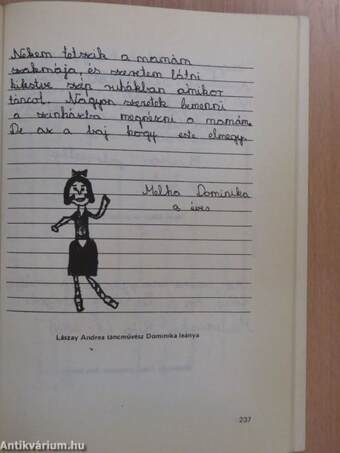 Nekem tetszik a mamám
szakmája, és szeretem látni
kifestve szép ruhákban amikor
táncol. Nagyon szeretek bemenni
a szinházba megnézni a mamám.
De az a baj hogy este elmegy.
Melha Dominika
9 éves
Lászay Andrea táncművész Dominika leánya
237
Antikvárium.hu